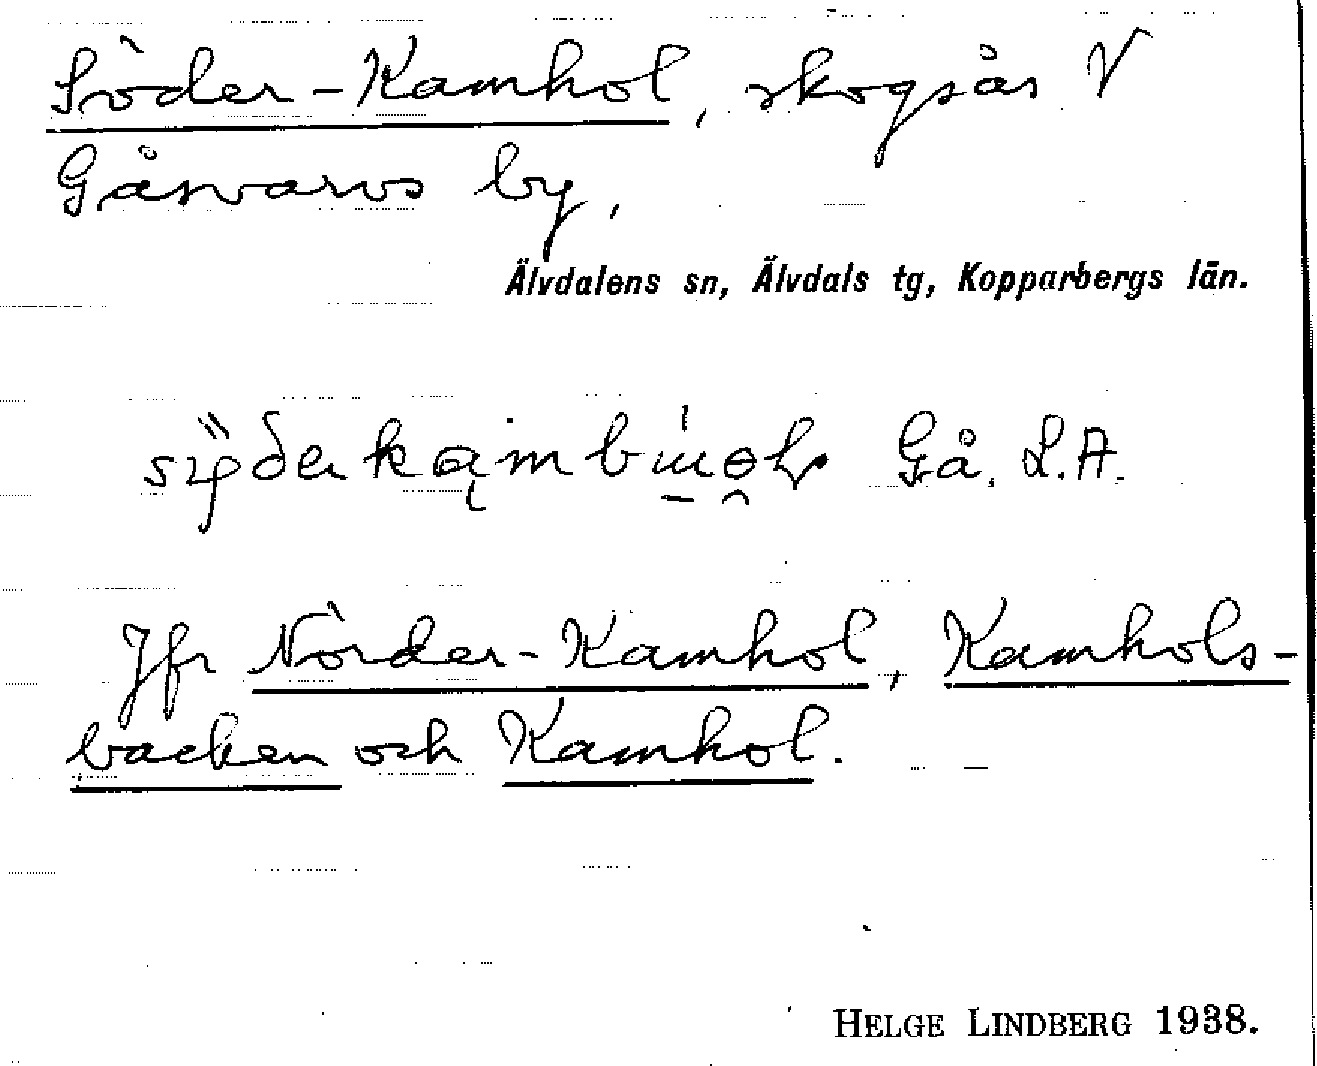 Söder-Kamhol, skogsås V
Gåsvarvs by,
Älvdalens sn, Älvdals tg, Kopparbergs län.
Gå. L.A.
Jfr Nörder-Kamhol, Kamhols-
backen och Kamhol.
HELGE LINDBERG 1938.